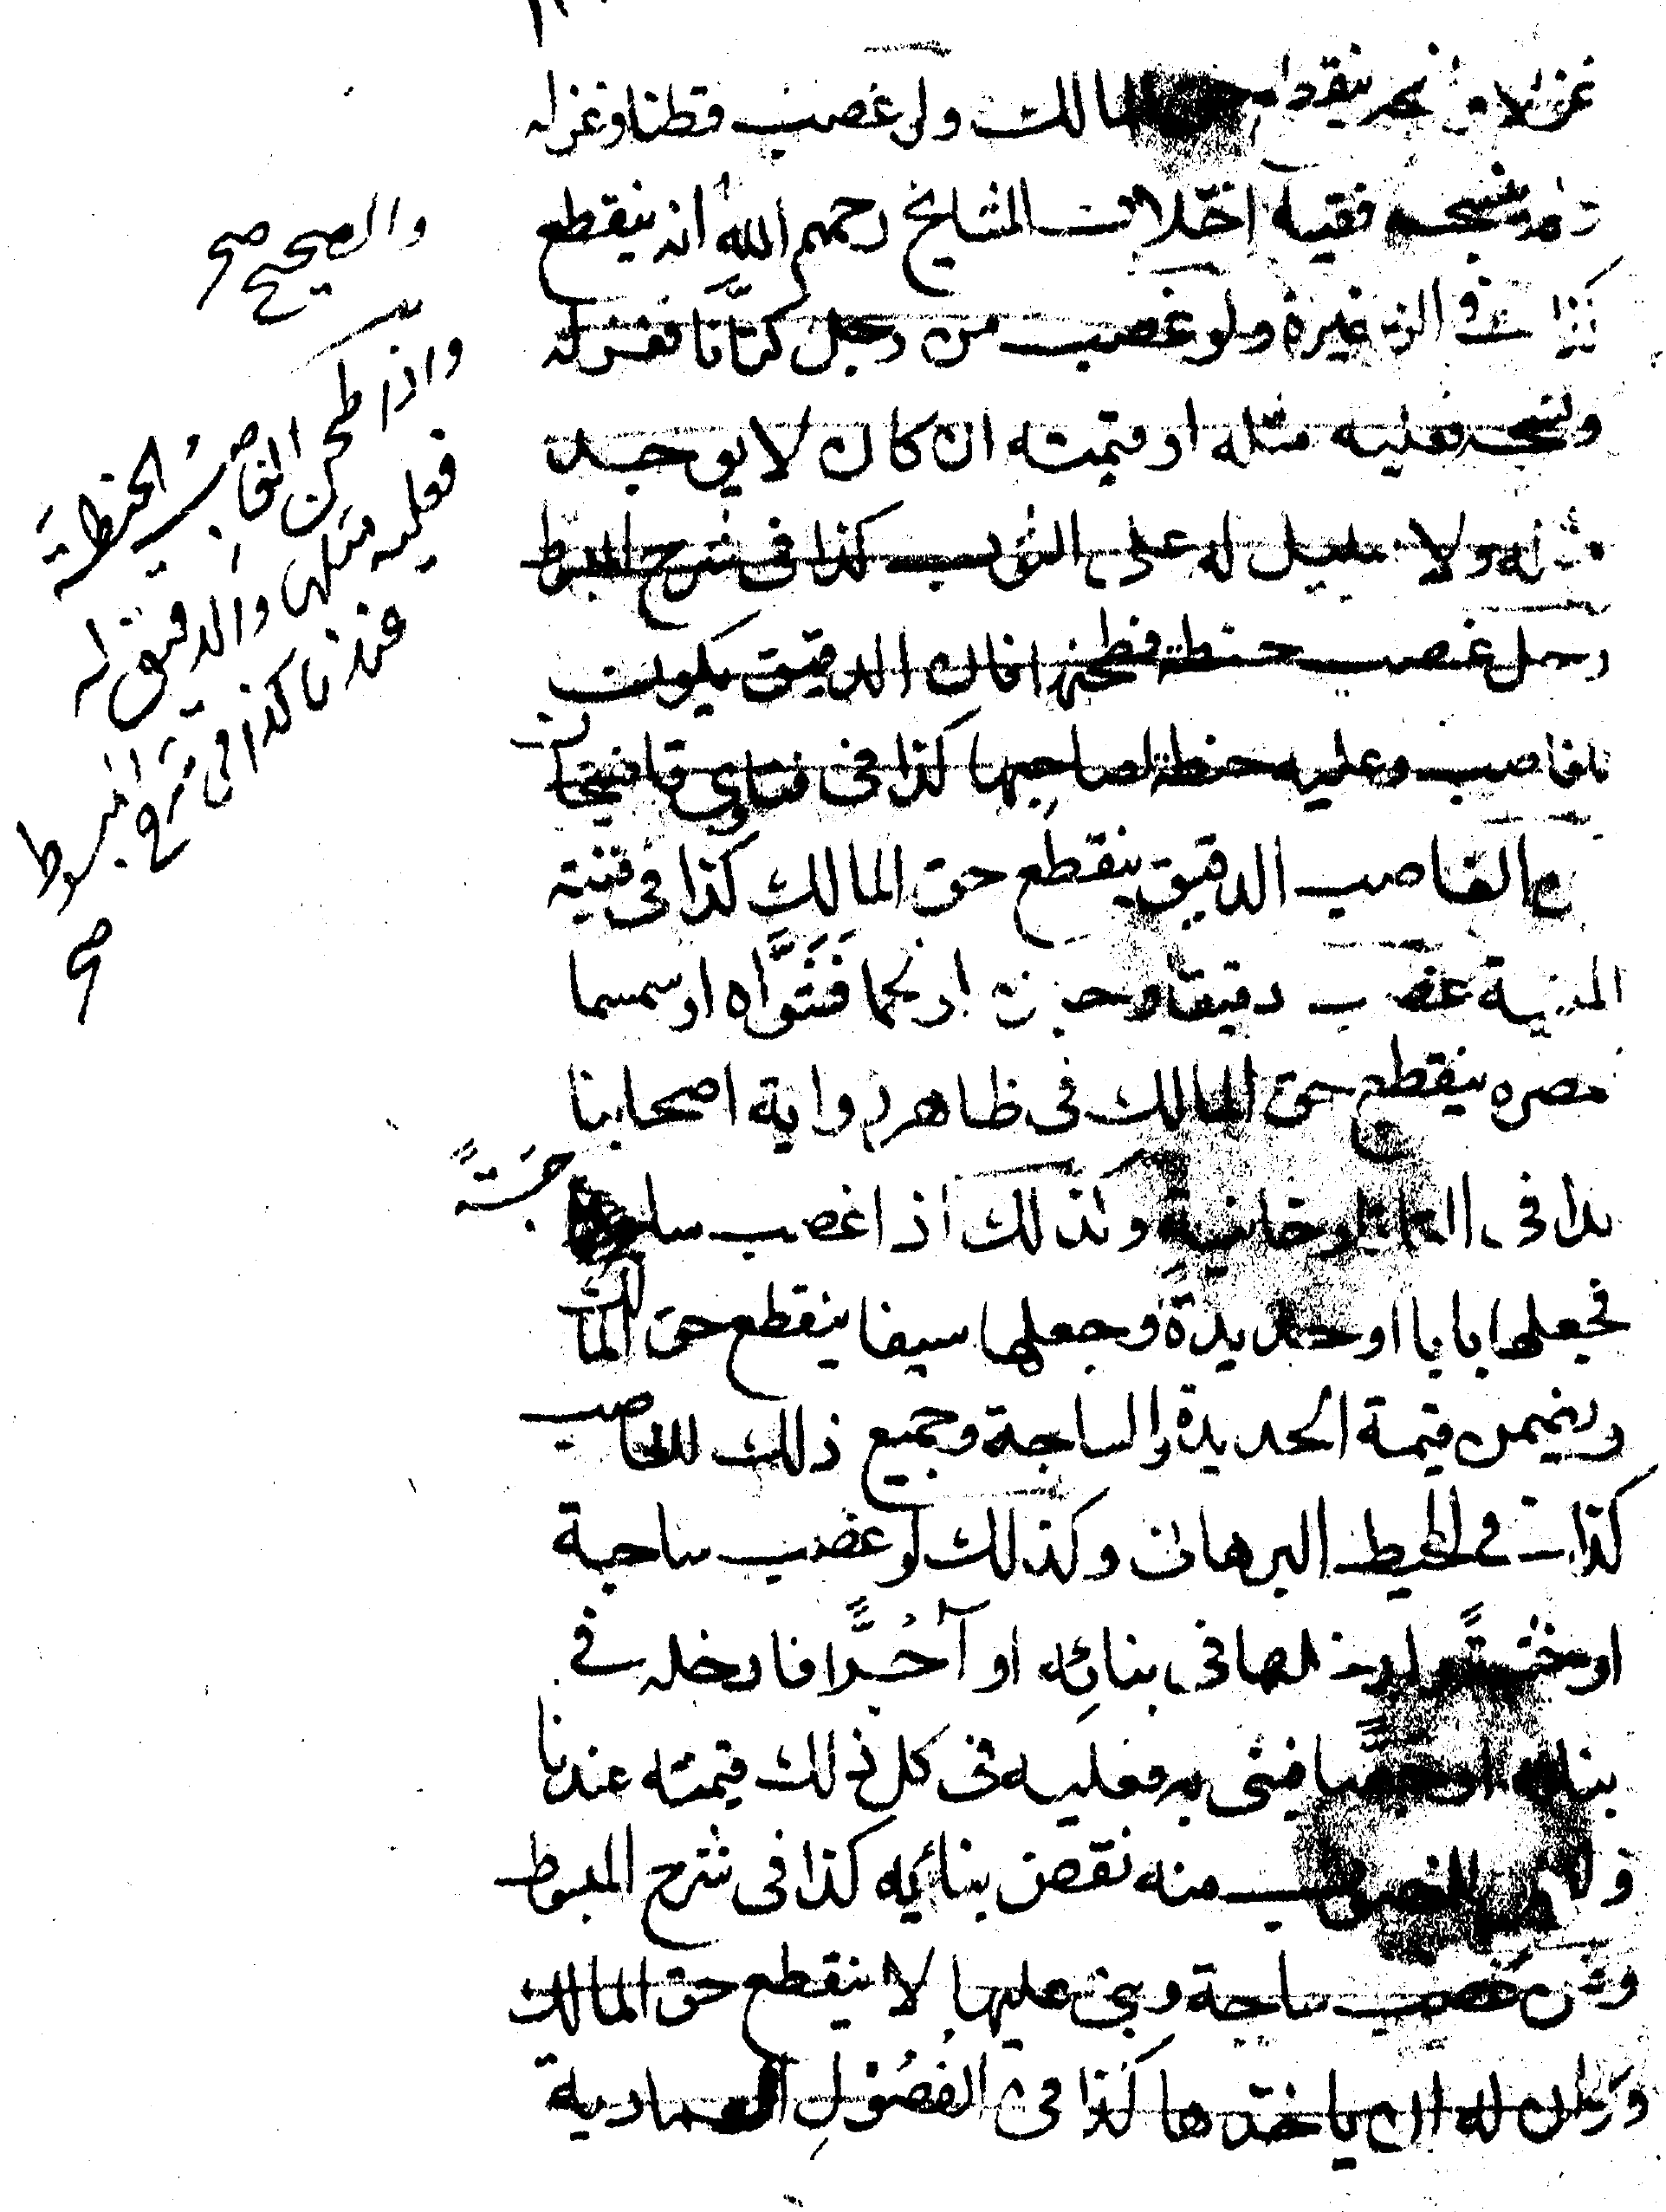 غزلا ونسجه ينقطع حق المالك ولو غصب قطنا وغزله
ونسجه ففيه اختلاف المشايخ رحمهم الله انه ينقطع
كذا في الذخيرة ولو غصب من رجل كتّانا فغزله
ونسجه فعليه مثله او قيمته ان كان لا يوجد
مثله ولا سبيل له على الثوب كذا في شرح المبسوط
رجل غصب حنطة فطحنها فان الدقيق يكون
للغاصب وعليه حنطة لصاحبها كذا في فتاوي قاضيخان
الغاصب الدقيق ينقطع حق المالك كذا في قنية
المنية غصب دقيقا وخبزه او لحما فشواه او سمسما
فعصره ينقطع حق المالك في ظاهر رواية اصحابنا
كذا في التاتارخانية وكذلك اذا غصب ساجة
فجعلها بابا او حديدة وجعلها سيفا ينقطع حق المالك
ويضمن قيمة الحديدة والساجة وجميع ذلك للغاصب
كذا في المحيط البرهاني وكذلك لو غصب ساجة
او خشبة وادخلها في بنائه او آجرّا فادخله في
بنائه او جصّا فبنى به فعليه في كل ذلك قيمته عندنا
وليس للمغصوب منه نقض بنائه كذا في شرح المبسوط
ومن غصب ساحة وبنى عليها لا ينقطع حق المالك
وكان له ان ياخذها كذا في الفُصُولِ العمادية
والصحيح صح
واذا طحن الغاصب الحنطة
فعليه مثلها والدقيق له
عندنا كذا في شرح المبسوط
صح
جَةً